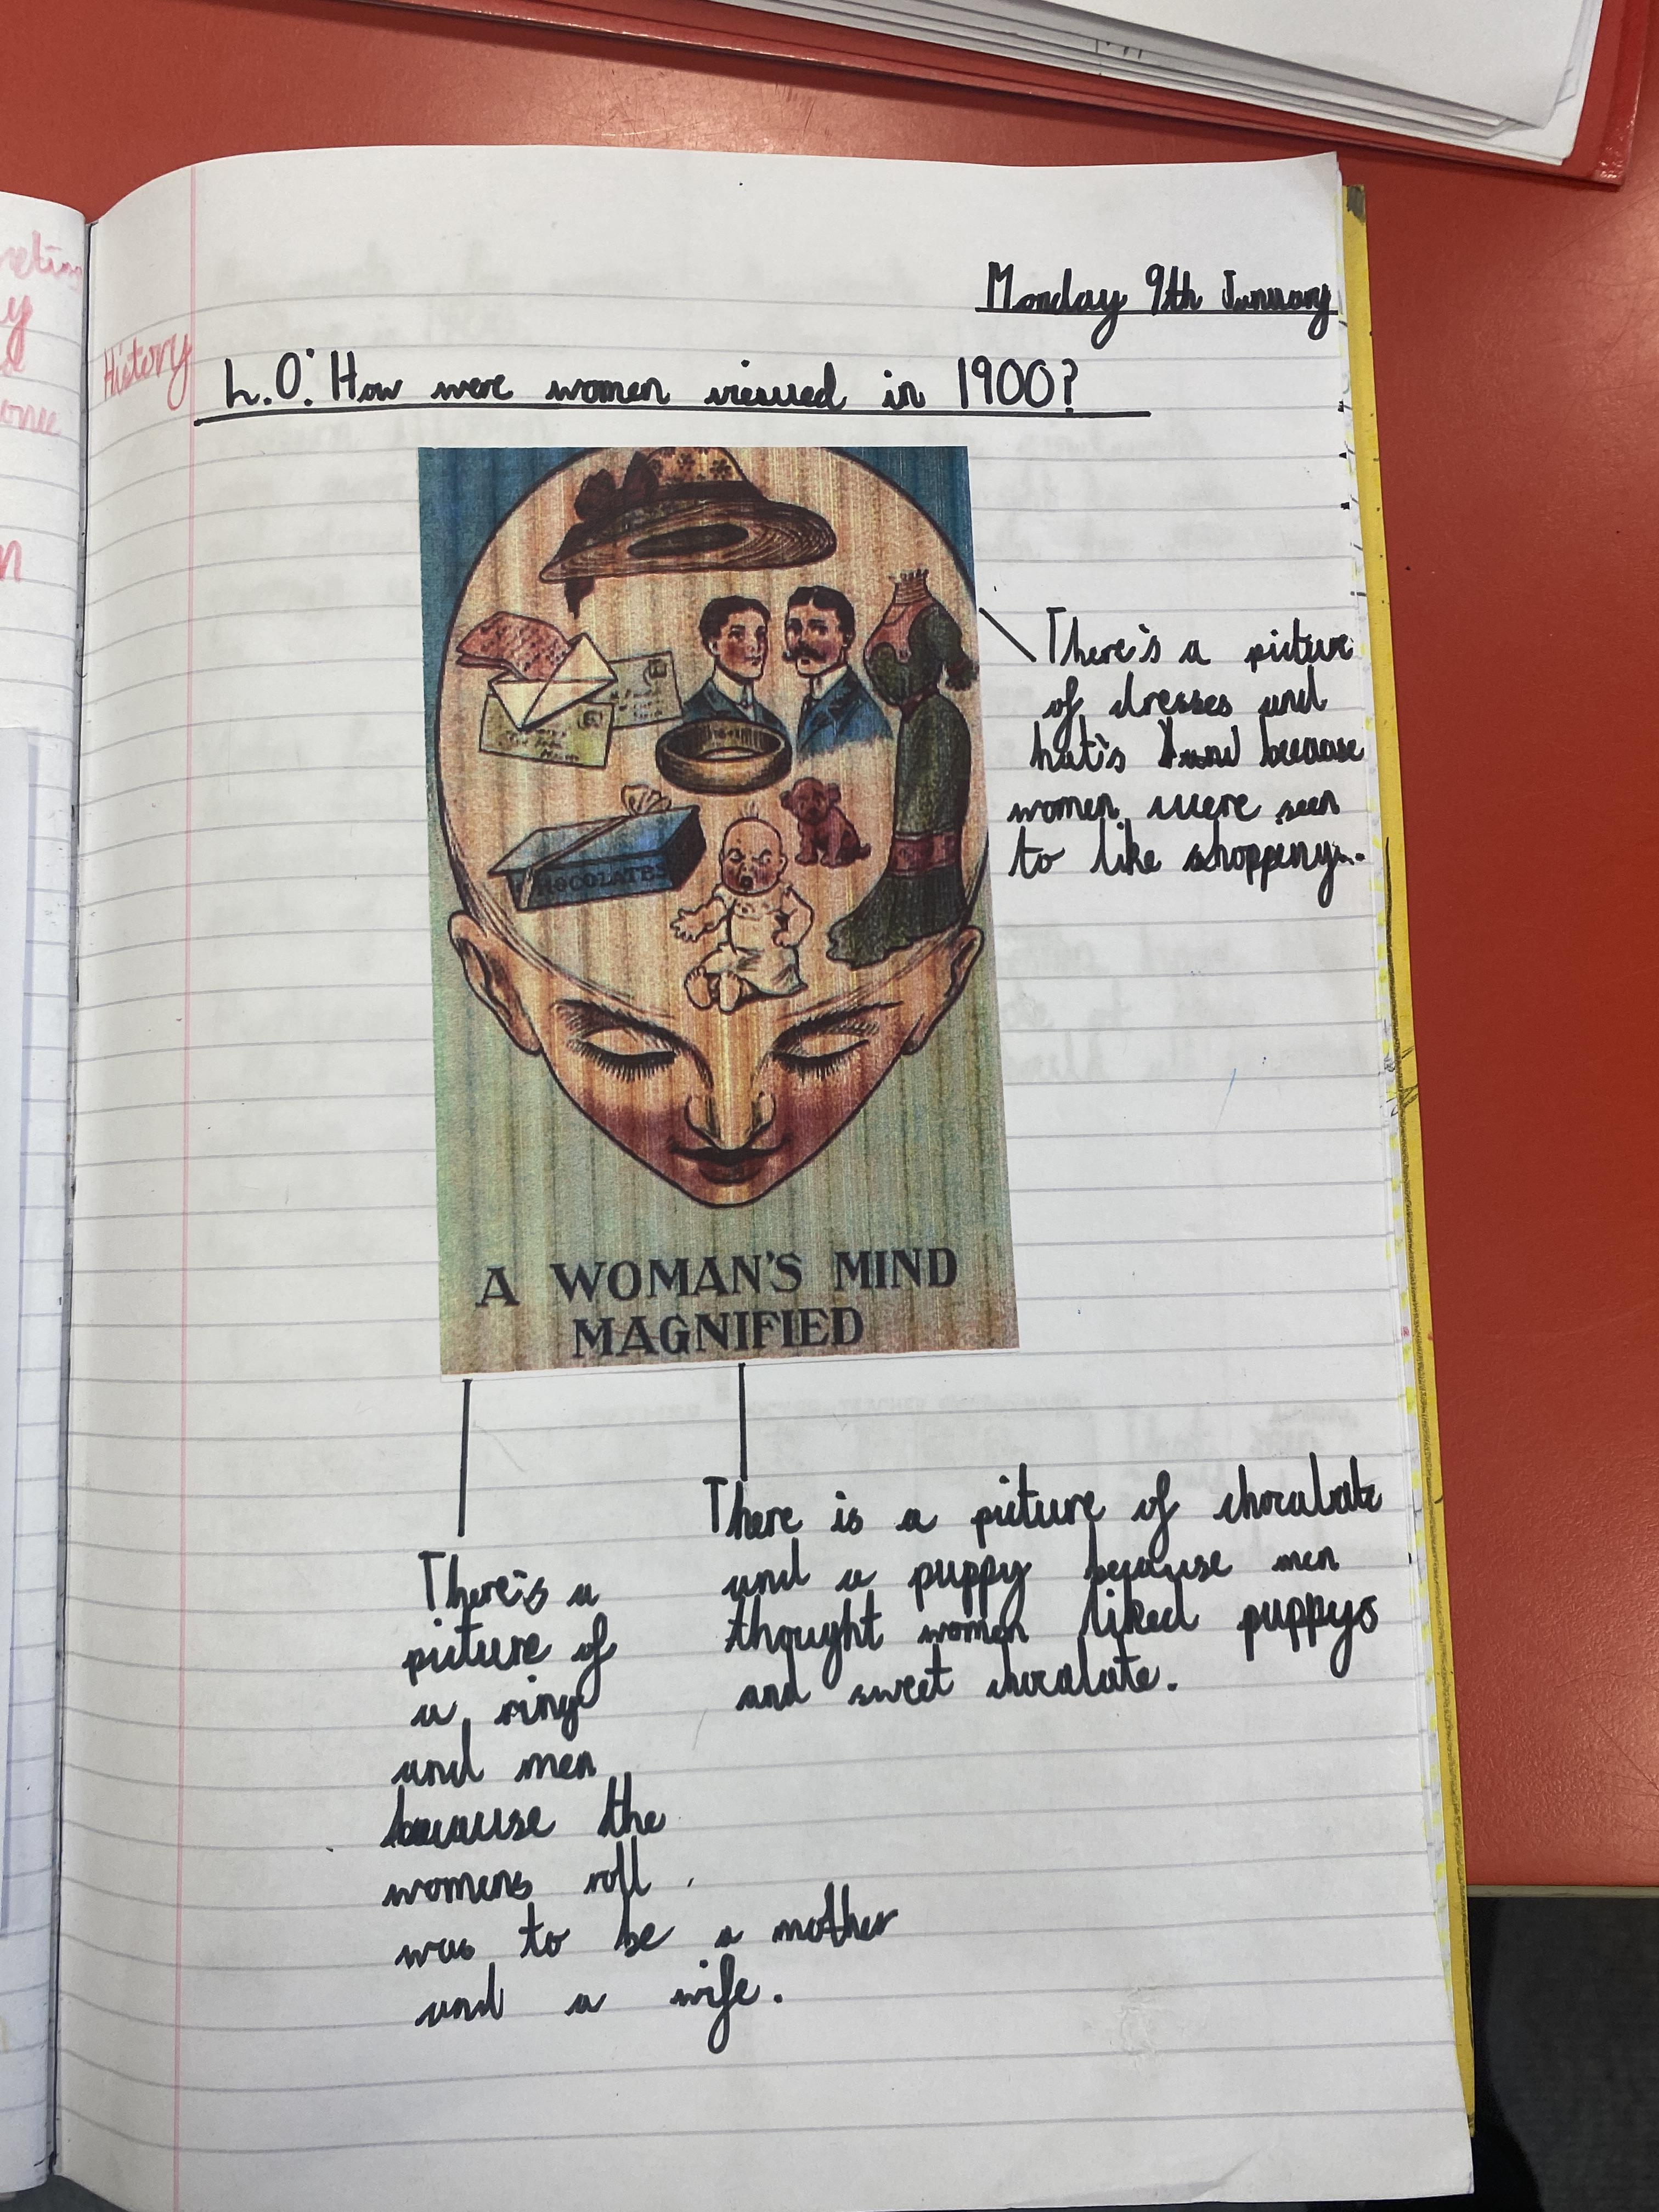 Monday 9th January
History
L.O: How were women viewed in 1900?
There's a picture
of dresses and
hat's and because
women were seen
to like shopping.
CHOCOLATES
A WOMAN'S MIND
MAGNIFIED
There's a
picture of
a ring
and men
because the
womens roll
was to be a mother
and a wife.
There is a picture of chocalate
and a puppy because men
thought women liked puppys
and sweet chocalate.